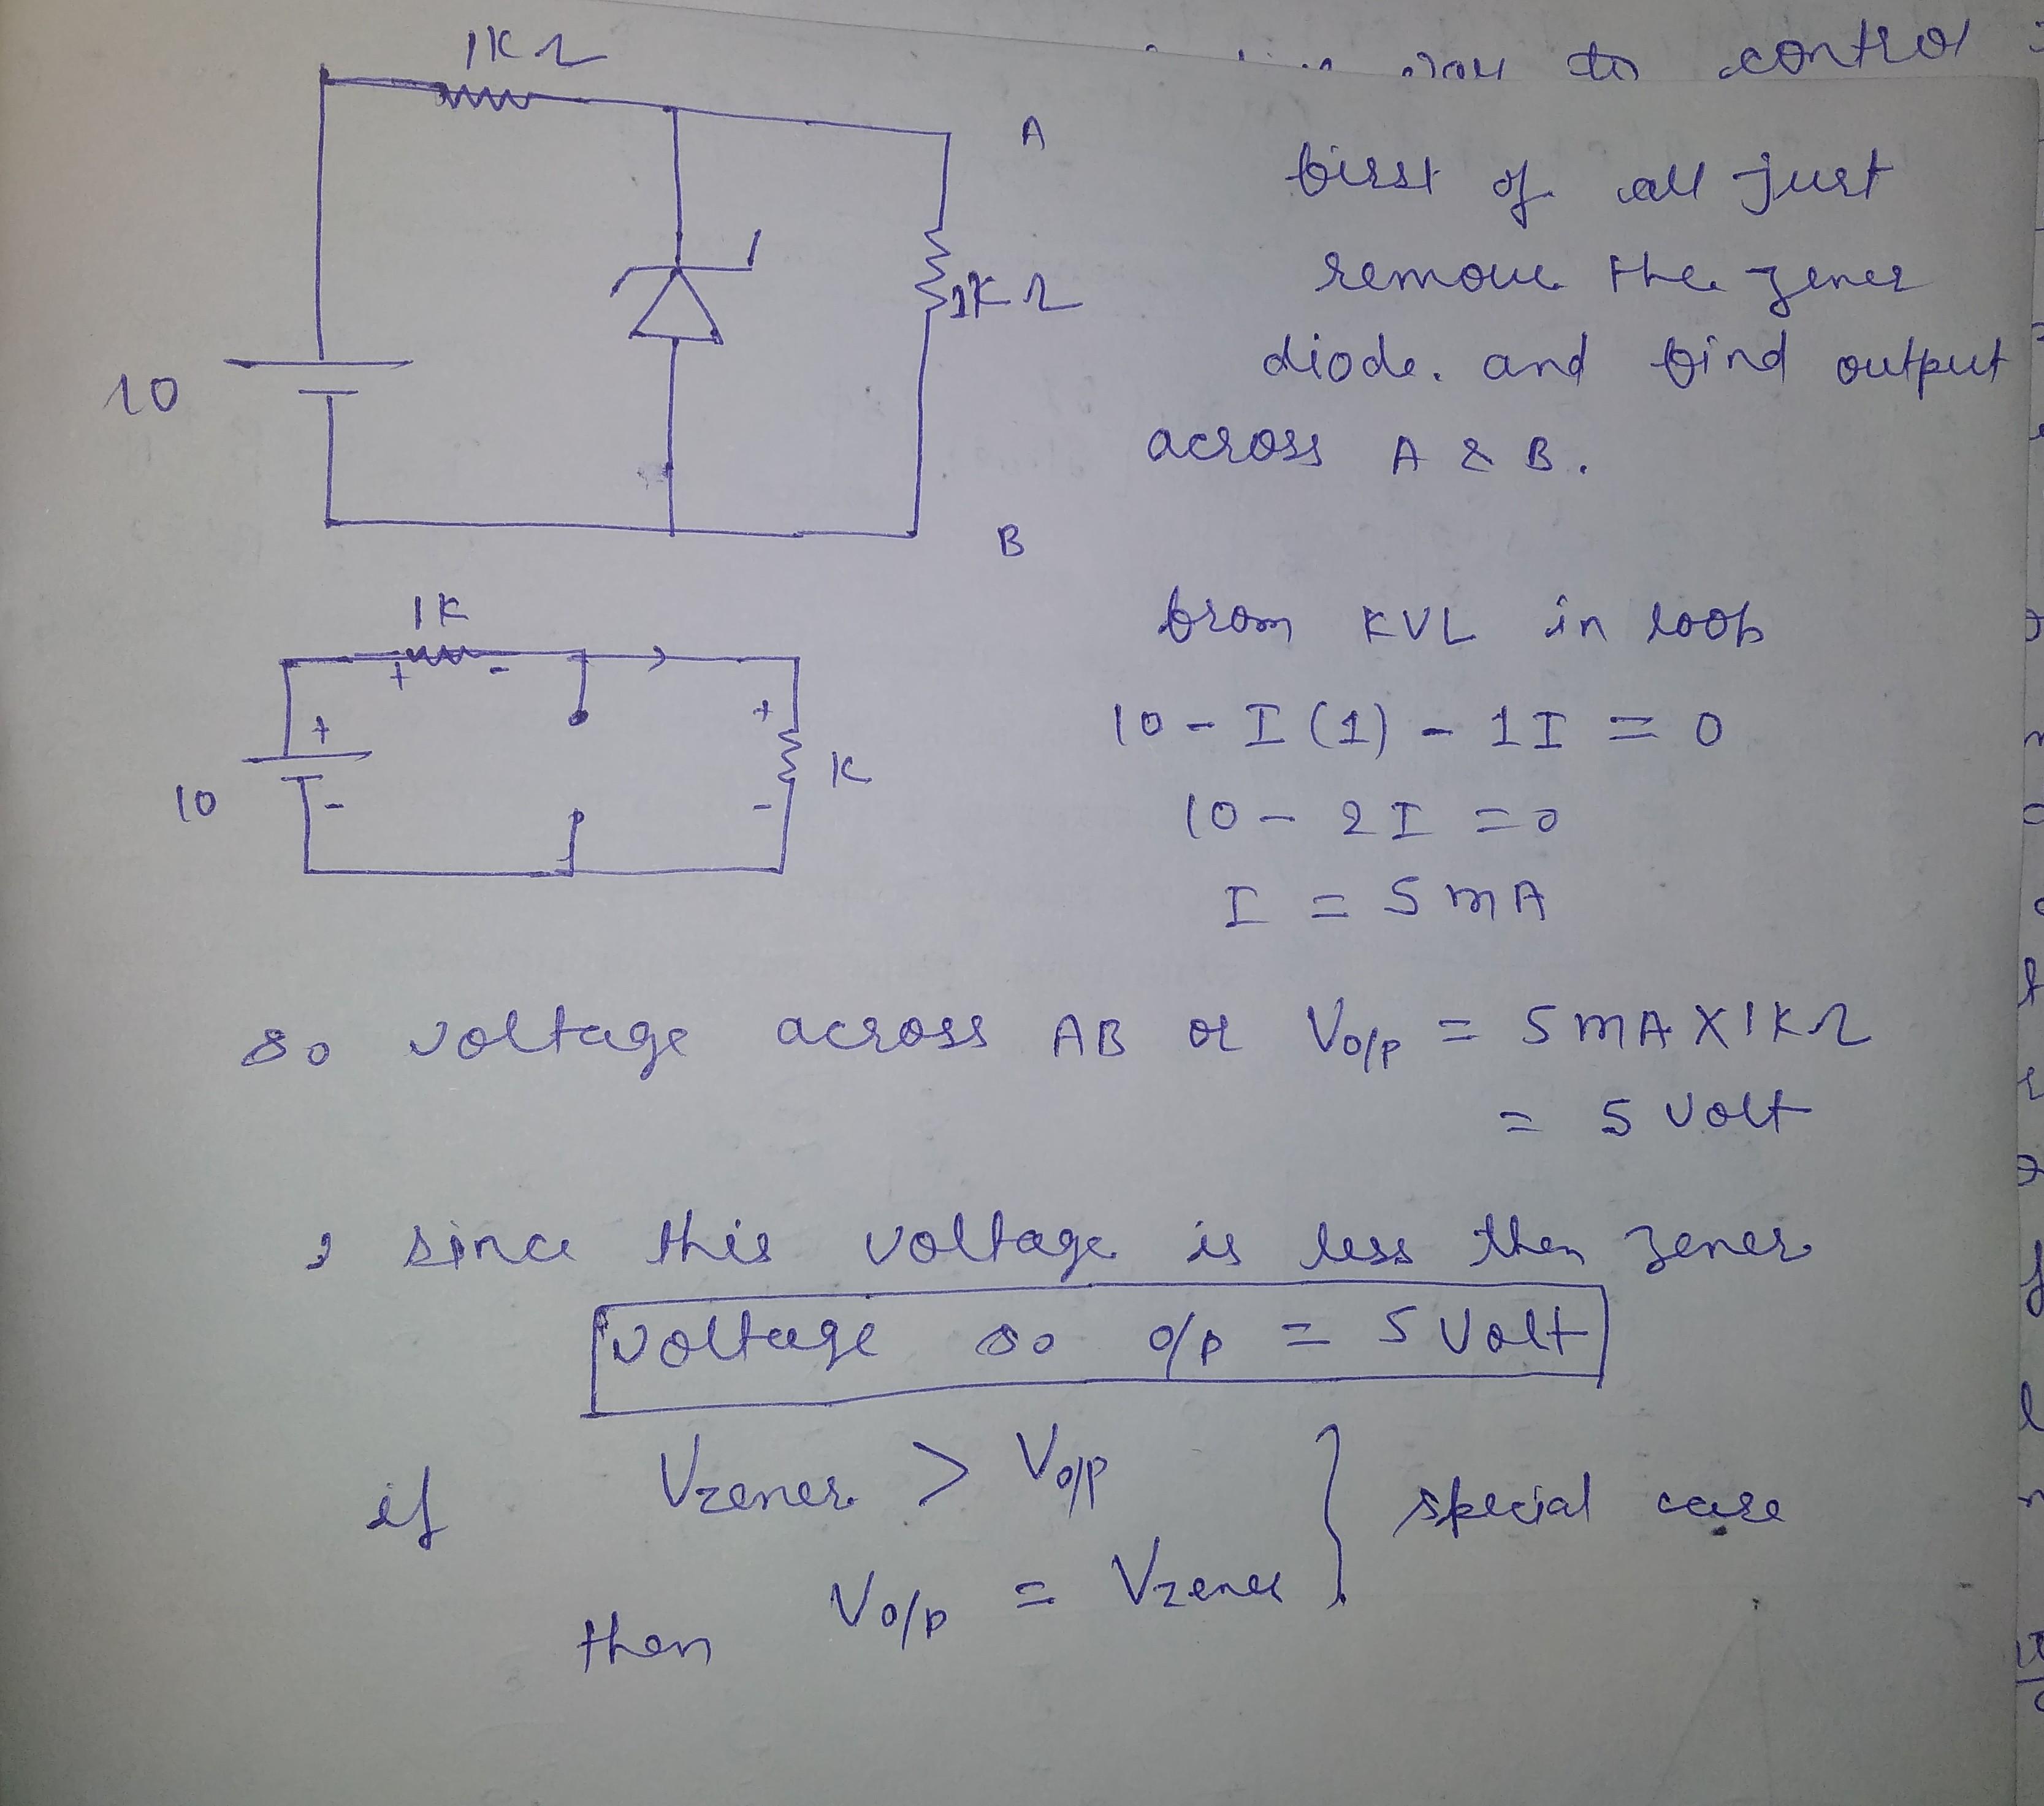 to control
1KΩ
A
first of all just
remove the zener
1KΩ
diode. and find output
10
across A & B.
B
1K
from KVL in loop
+ -
10 - I (1) - 1I = 0
+ +
K
10
- -
10 - 2I = 0
I = 5 mA
so voltage across AB or Vo/p = 5 mA X 1KΩ
= 5 volt
, since this voltage is less then zener
voltage so o/p = 5 Volt
if Vzener > Vo/p
special case
then Vo/p = Vzener